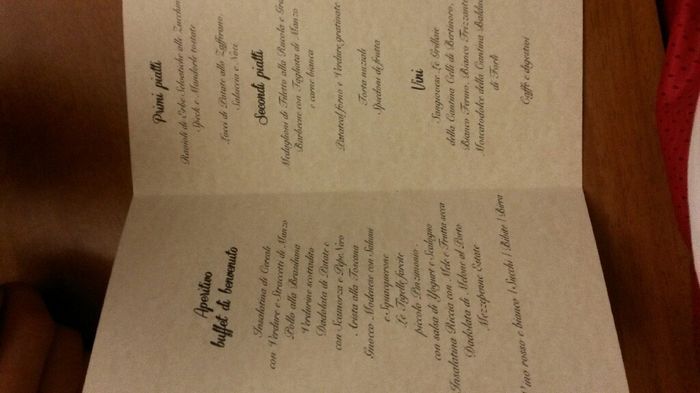 Aperitivo
buffet di benvenuto
Insalatina di Cereali
con Verdure e Straccetti di Manzo
Pollo alla Brasiliana
Verdurine scottadito
Dadolata di Patate e
con Scamorza e Pepe Nero
Arista alla Toscana
Gnocco Modenese con Salumi
e Squacquerone
Le Tigelle farcite
piccolo Pinzimonio
con salsa di Yogurt e Scalogno
Insalatina Riccia con Mele e Frutta secca
Dadolata di Melone al Porto
Mezzepenne Estate
Vino rosso e bianco | Succhi | Bibite | Birra
Primi piatti
Ravioli di Erbe Selvatiche alle Zucchine
Speck e Mandorle tostate
di Patate allo Zafferano,
Salsiccia e Noci
Secondi piatti
Medaglioni di Filetto alla Rucola e
Barbecue con Tagliata di Manzo
e carne bianca
Patate al forno e Verdure gratinate
Torta nuziale
Spiedoni di frutta
Vini
Sangiovese Le Grillaie
della Cantina Celli di Bertinoro,
Bianco Fermo, Bianco Frizzante
Moscato dolce della Cantina
di Forlì
Caffè e digestivi